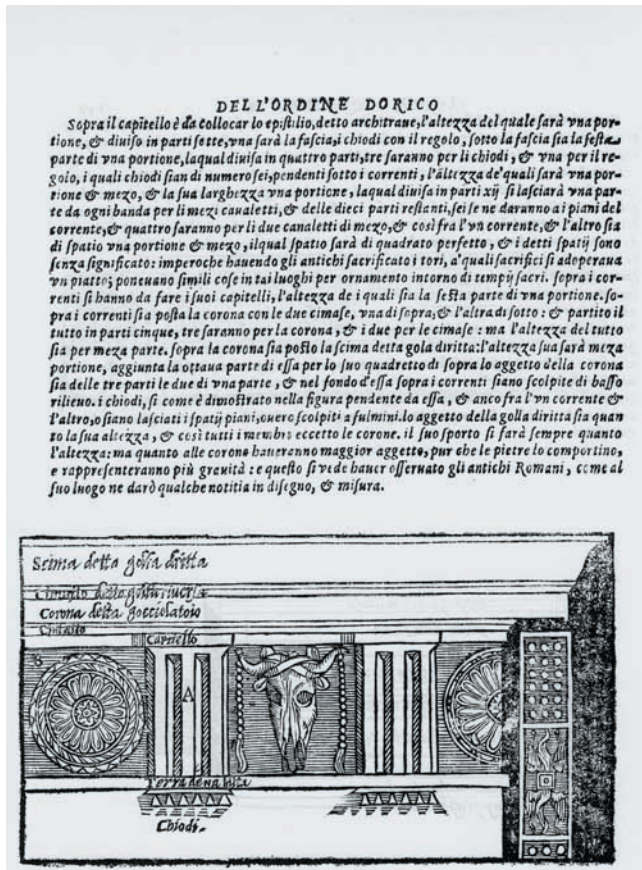 DELL'ORDINE DORICO
Sopra il capitello è da collocar lo epistilio, detto architrave, l'altezza del quale sarà vna por-
tione, & diuiso in parti sette, vna sarà la fascia, i chiodi con il regolo, sotto la fascia sia la sesta
parte di vna portione, laqual diuisa in quattro parti, tre saranno per li chiodi, & vna per il re-
golo, i quali chiodi sian di numero sei, pendenti sotto i correnti, l'altezza de'quali sarà vna por-
tione & mezo, & la sua larghezza vna portione, laqual diuisa in parti xij si lasciarà vna par-
te da ogni banda per li mezi canaletti, & delle dieci parti restanti, sei se ne daranno ai piani del
corrente, & quattro saranno per li due canaletti di mezo, & così fra l'vn corrente, & l'altro sia
di spatio vna portione & mezo, ilqual spatio sarà di quadrato perfetto, & i detti spatij sono
senza significato: imperoche hauendo gli antichi sacrificato i tori, a'quali sacrifici si adoperaua
vn piatto; poneuano simili cose in tai luoghi per ornamento intorno di tempij sacri. sopra i cor-
renti si hanno da fare i suoi capitelli, l'altezza de i quali sia la sesta parte di vna portione. so-
pra i correnti sia posta la corona con le due cimase, vna di sopra, & l'altra di sotto: & partito il
tutto in parti cinque, tre saranno per la corona, & i due per le cimase: ma l'altezza del tutto
sia per meza parte. sopra la corona sia posto la scima detta gola diritta: l'altezza sua sarà meza
portione, aggiunta la ottaua parte di essa per lo suo quadretto di sopra lo aggetto della corona
sia delle tre parti le due di vna parte, & nel fondo d'essa sopra i correnti siano scolpite di basso
rilieuo. i chiodi, si come è dimostrato nella figura pendente da essa, & anco fra l'vn corrente &
l'altro, o siano lasciati i spatij piani, ouero scolpiti a fulmini. lo aggetto della golla diritta sia quan
to la sua altezza, & così tutti i membri eccetto le corone. il suo sporto si farà sempre quanto
l'altezza: ma quanto alle corone haueranno maggior aggetto, pur che le pietre lo comportino,
e rappresenteranno più grauità: e questo si vede hauer osseruato gli antichi Romani, come al
suo luogo ne darò qualche notitia in disegno, & misura.
Scima detta golla dritta
Corona detta gocciolatoio
Cimatio
Capitello
B
A
Chiodi.